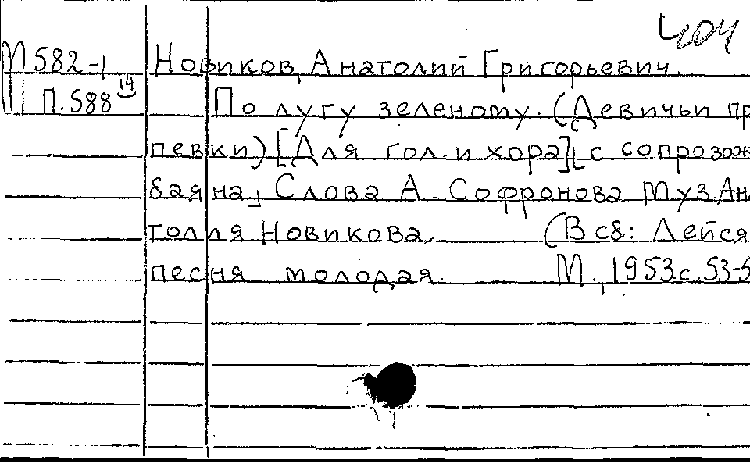 404
М582-1 Новиков, Анатолий Григорьевич.
П.588 14 По лугу зеленому. (Девичьи пр
певки) [Для гол. и хора] [с сопровож
баяна] Слова А. Софронова Муз. Ана
толия Новикова. (В сб: Лейся
песня молодая. М., 1953 с. 53-5